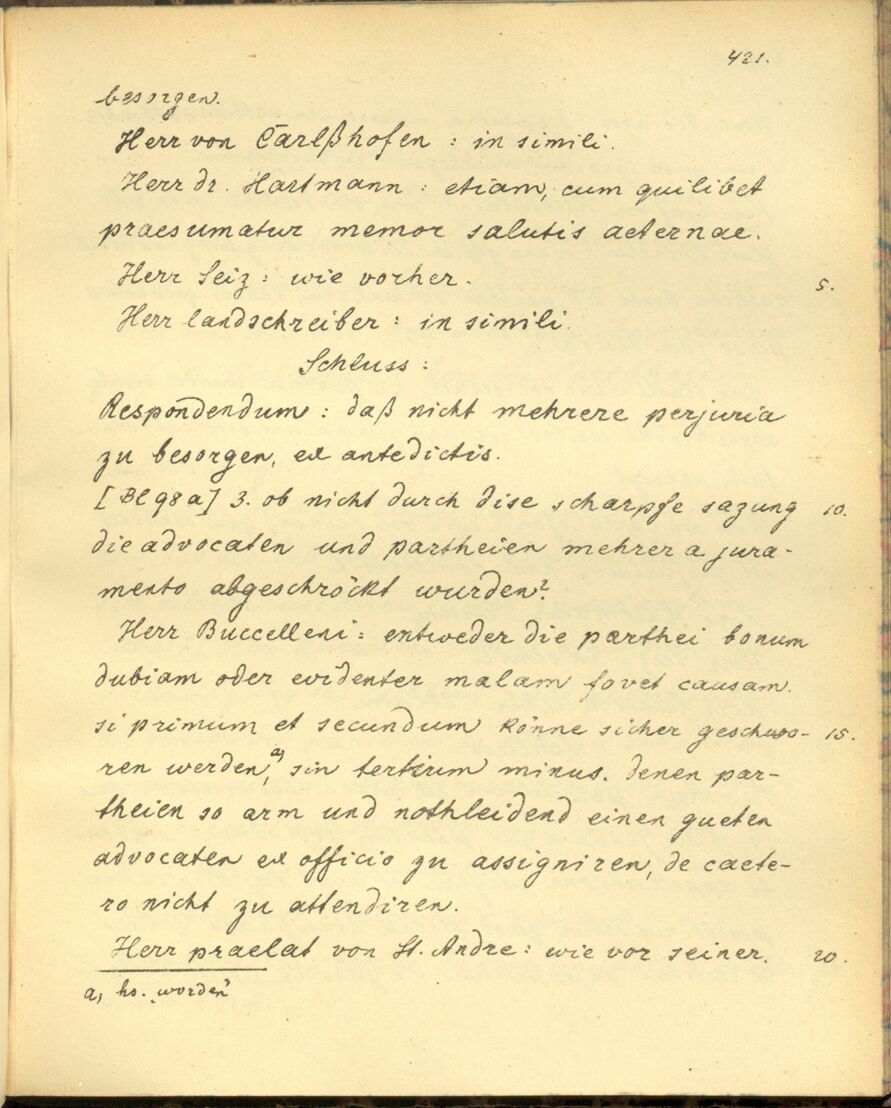 421.
besorgen.
Herr von Carlßhofen : in simili.
Herr dr. Hartmann : etiam, cum quilibet
praesumatur memor salutis aeternae.
Herr Seiz : wie vorher.
5.
Herr landschreiber : in simili.
Schluss :
Respondendum : daß nicht mehrere perjuria
zu besorgen, ex antedictis.
[Bl 98 a] 3. ob nicht durch dise scharpfe sazung
10.
die advocaten und partheien mehrer a jura-
mento abgeschröckt wurden?
Herr Buccelleni : entweder die parthei bonum
dubiam oder evidenter malam fovet causam.
si primum et secundum könne sicher geschwo-
15.
ren werden a), sin tertium minus. denen par-
theien so arm und nothleidend einen gueten
advocaten ex officio zu assigniren, de caete-
ro nicht zu attendiren.
Herr praelat von St. Andre : wie vor seiner.
20.
a, hs. „worden"